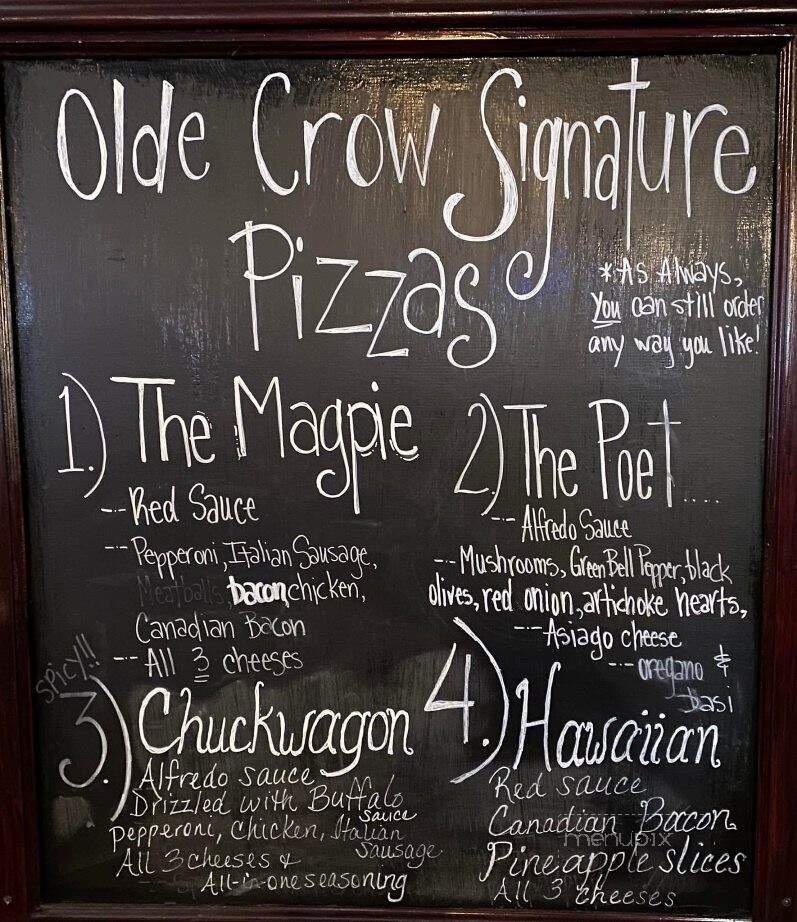 Olde Crow Signature
Pizzas
*As Always,
You can still order
any way you like!
1.) The Magpie
--- Red Sauce
--- Pepperoni, Italian Sausage,
Meatballs, bacon, chicken,
Canadian Bacon
--- All 3 cheeses
2.) The Poet....
--- Alfredo Sauce
--- Mushrooms, Green Bell Pepper, black
olives, red onion, artichoke hearts,
--- Asiago cheese
--- oregano &
Basi
Spicy!!
3.) Chuckwagon
Alfredo sauce
Drizzled with Buffalo
sauce
Pepperoni, Chicken, Italian
Sausage
All 3 cheeses &
All-in-one seasoning
4.) Hawaiian
Red sauce
Canadian Bacon
Pineapple slices
All 3 cheeses
menupix